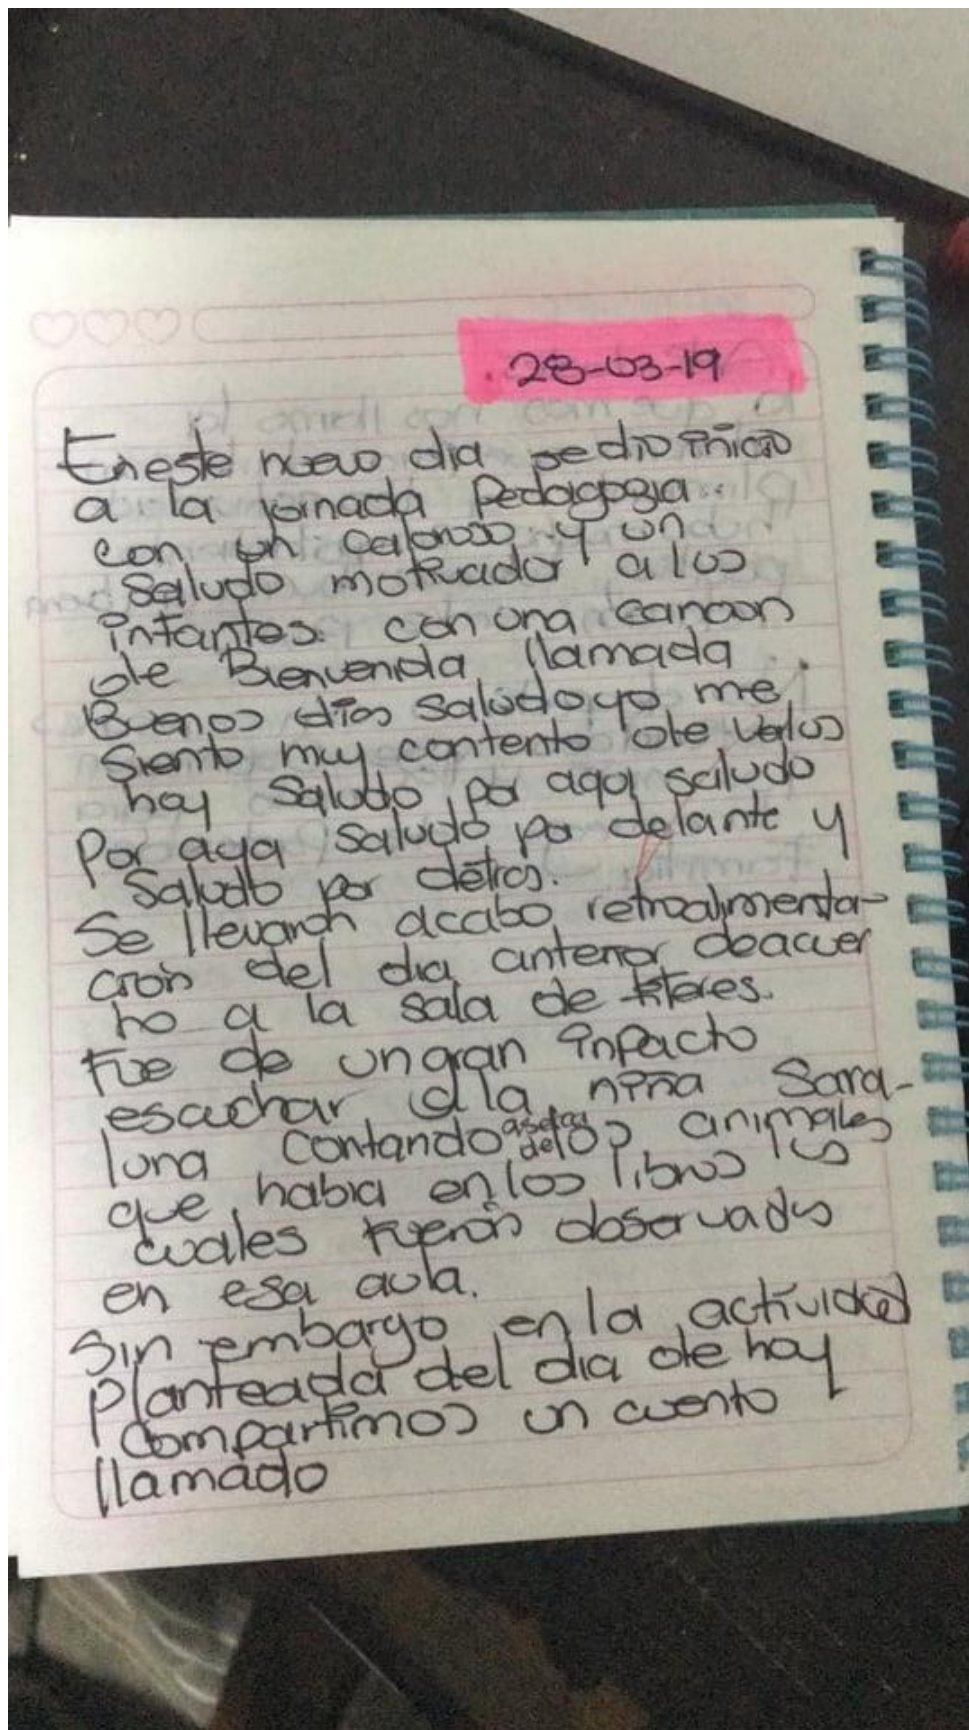 28-03-19
En este nuevo dia se dio inicio
a la jornada Pedagogia
con un caloroso y un
saludo motivador a los
infantes con una cancion
de Bienvenida llamada
Buenos dias saludo yo me
siento muy contento de verlos
hoy saludo por aqui saludo
Por aya saludo por delante y
saludo por detras.
Se llevaron acabo retroalimenta-
cion del dia anterior deacuer
ho a la sala de titeres.
Fue de un gran inpacto
escuchar a la niña Sara-
luna contando aserca de los animales
que habia en los libros los
cuales fueron observados
en esa aula.
Sin embargo en la actividad
planteada del dia de hoy
compartimos un cuento
llamado